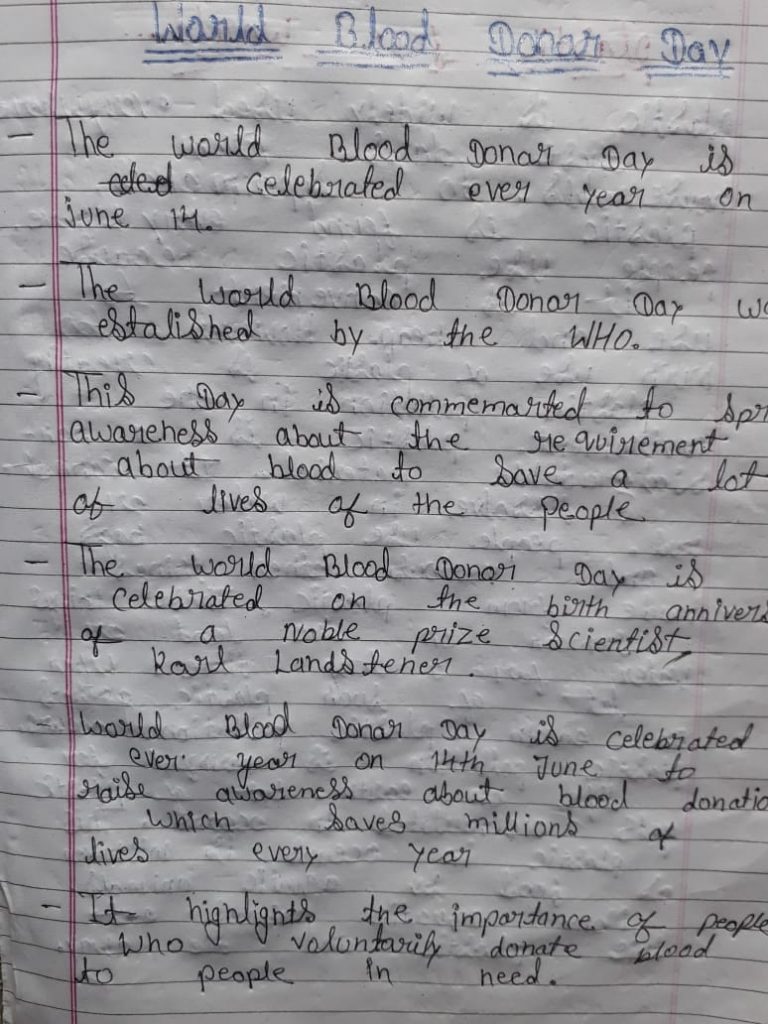 World Blood Donar Day
- The world Blood Donar Day is
celebrated ever year on
june 14.
- The World Blood Donar Day
estalished by the WHO.
- This Day is commemarted to spr
awareness about the requirement
about blood to save a lot
of lives of the people.
- The world Blood Donor Day is
celebrated on the birth annivers
of a Noble prize Scientist,
Karl Landstener.
- World Blood Donar Day is celebrated
ever year on 14th June to
raise awareness about blood donatio
which saves millions of
lives every year
- It highlights the importance of people
who voluntarily donate blood
to people in need.